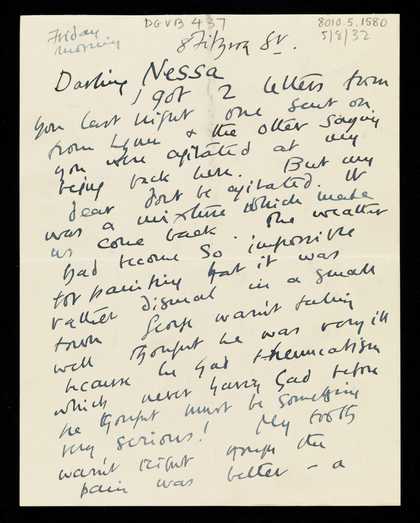 Friday
morning
DGVB 437
8010.5.1580
5/8/32
8 Fitzroy St.
Darling Nessa
I got 2 letters from
you last night one sent on
from Lynn & the other saying
you were agitated at my
being back here. But my
dear dont be agitated. It
was a mixture which made
us come back. The weather
had become so impossible
for painting that it was
rather dismal in a small
town George wasn't feeling
well thought he was very ill
because he had rheumatism
which never having had before
he thought must be something
very serious! My tooth
wasn't right though the
pain was better – a